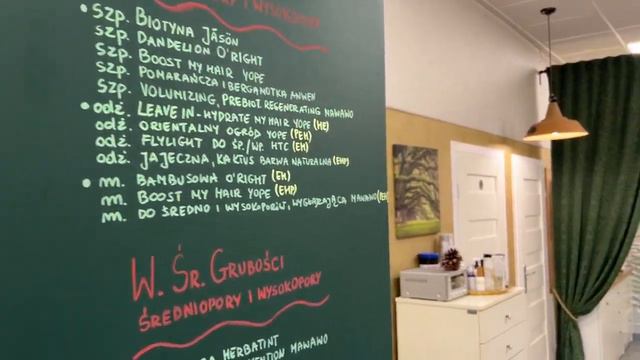 I WYSOKOPORY
• SZP. BIOTYNA JĀSÖN
SZP. DANDELION O'RIGHT
SZP. BOOST MY HAIR YOPE
SZP. POMARAŃCZA I BERGAMOTKA ANWEN
SZP. VOLUMIZING, PREBIOT. REGENERATING MAWAWO
• odż. LEAVE IN - HYDRATE MY HAIR YOPE (HE)
odż. ORIENTALNY OGRÓD YOPE (PEH)
odż. FLYLIGHT DO ŚP./WP. HTC (EH)
odż. JAJECZNA, KAKTUS BARWA NATURALNA (EHP)
• m. BAMBUSOWA O'RIGHT (EH)
m. BOOST MY HAIR YOPE (EHP)
m. DO ŚREDNIO I WYSOKOPORÓW, WYGŁADZAJĄCA MAWAWO (PEH
W. ŚR. GRUBOŚCI
ŚREDNIOPORY I WYSOKOPORY
HERBATINT
MAWAWO